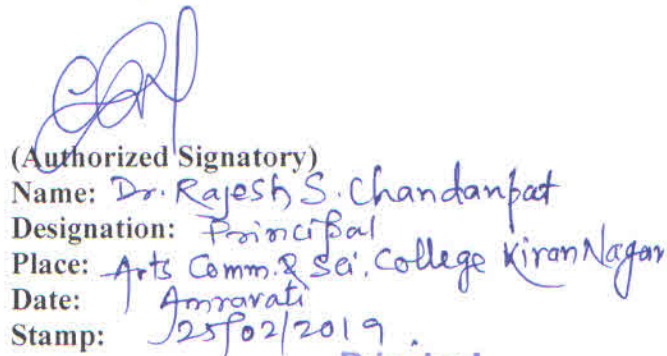 (Authorized Signatory)
Name: Dr. Rajesh S. Chandanpat
Designation: Principal
Place: Arts Comm. & Sci. College Kiran Nagar
Date: Amravati
Stamp: 25/02/2019.
Principal